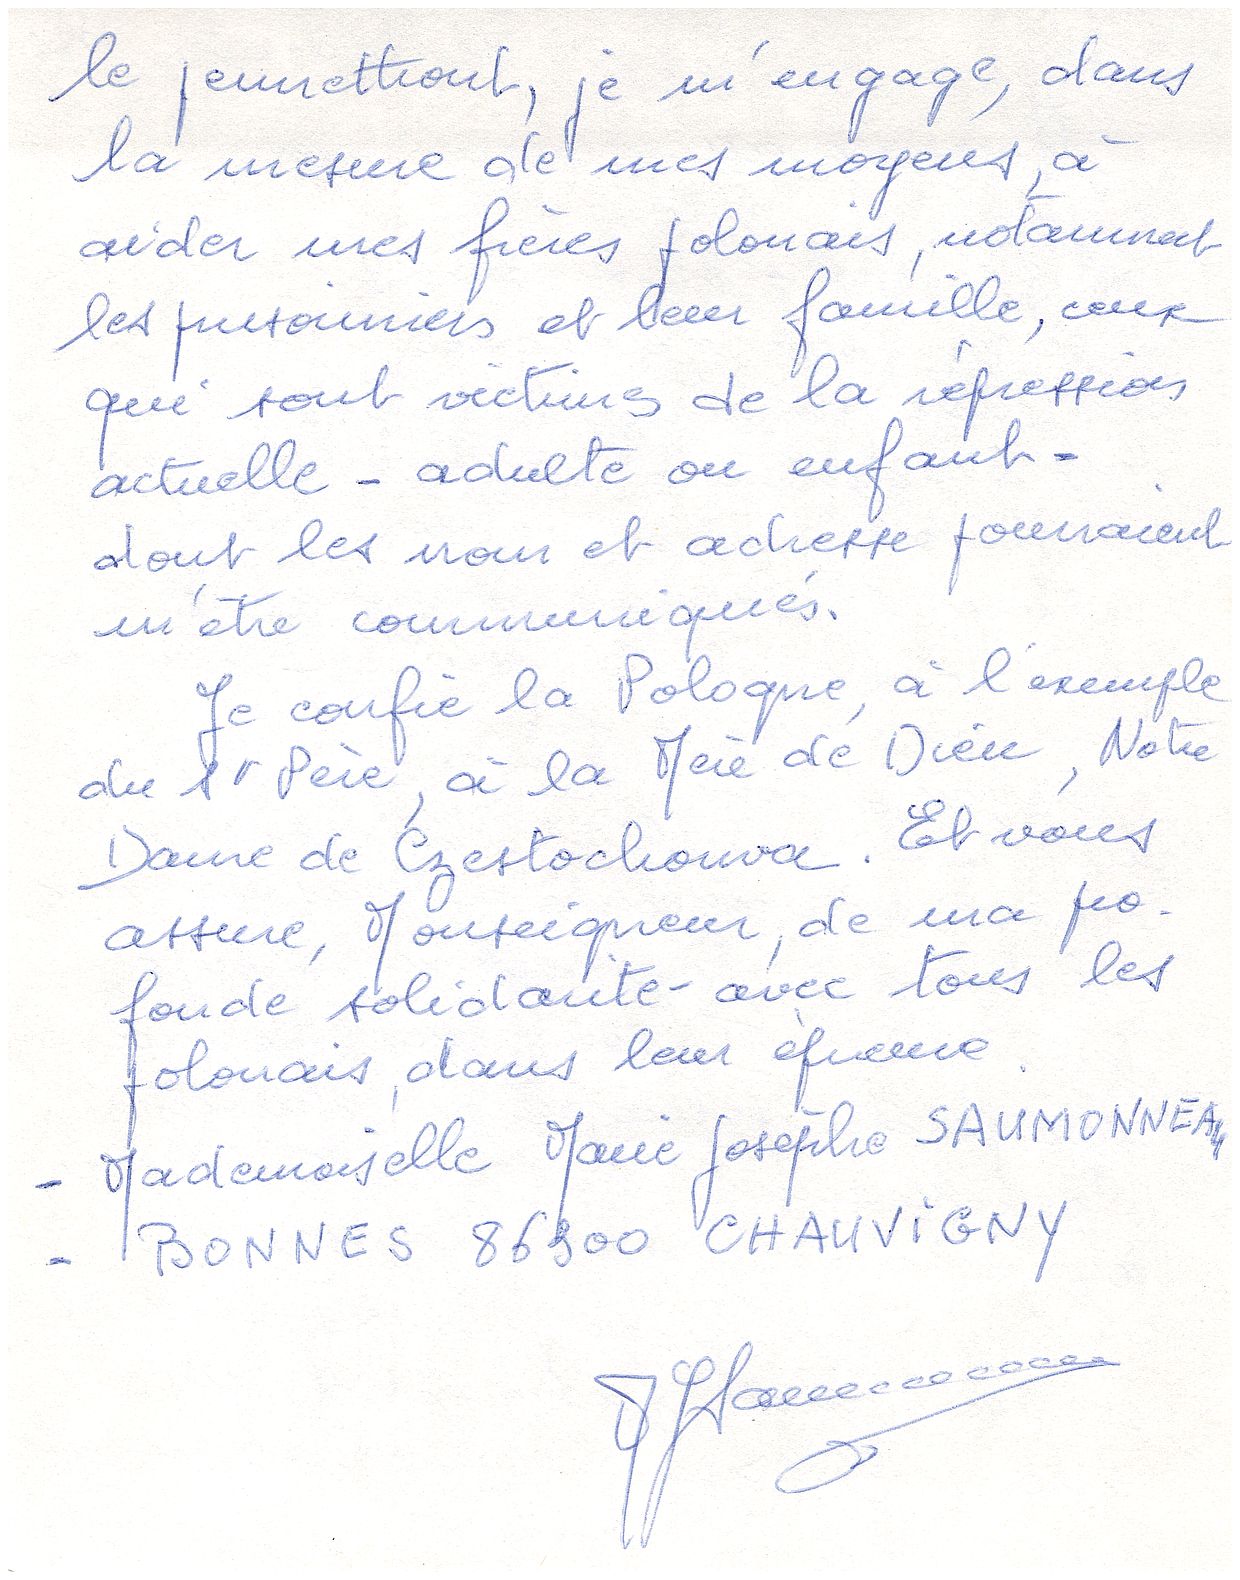 le permettront, je m'engage, dans
la mesure de mes moyens, à
aider mes frères polonais, notamment
les prisonniers et leur famille, ceux
qui sont victimes de la répression
actuelle - adulte ou enfant -
dont les nom et adresse pourraient
m'être communiqués.
Je confie la Pologne, à l'exemple
du St Père, à la Mère de Dieu, Notre
Dame de Czestochowa. Et vous
assure, Monseigneur, de ma pro-
fonde solidarité avec tous les
polonais, dans leur épreuve.
- Mademoiselle Marie Josèphe SAUMONNEAU
- BONNES 86300 CHAUVIGNY